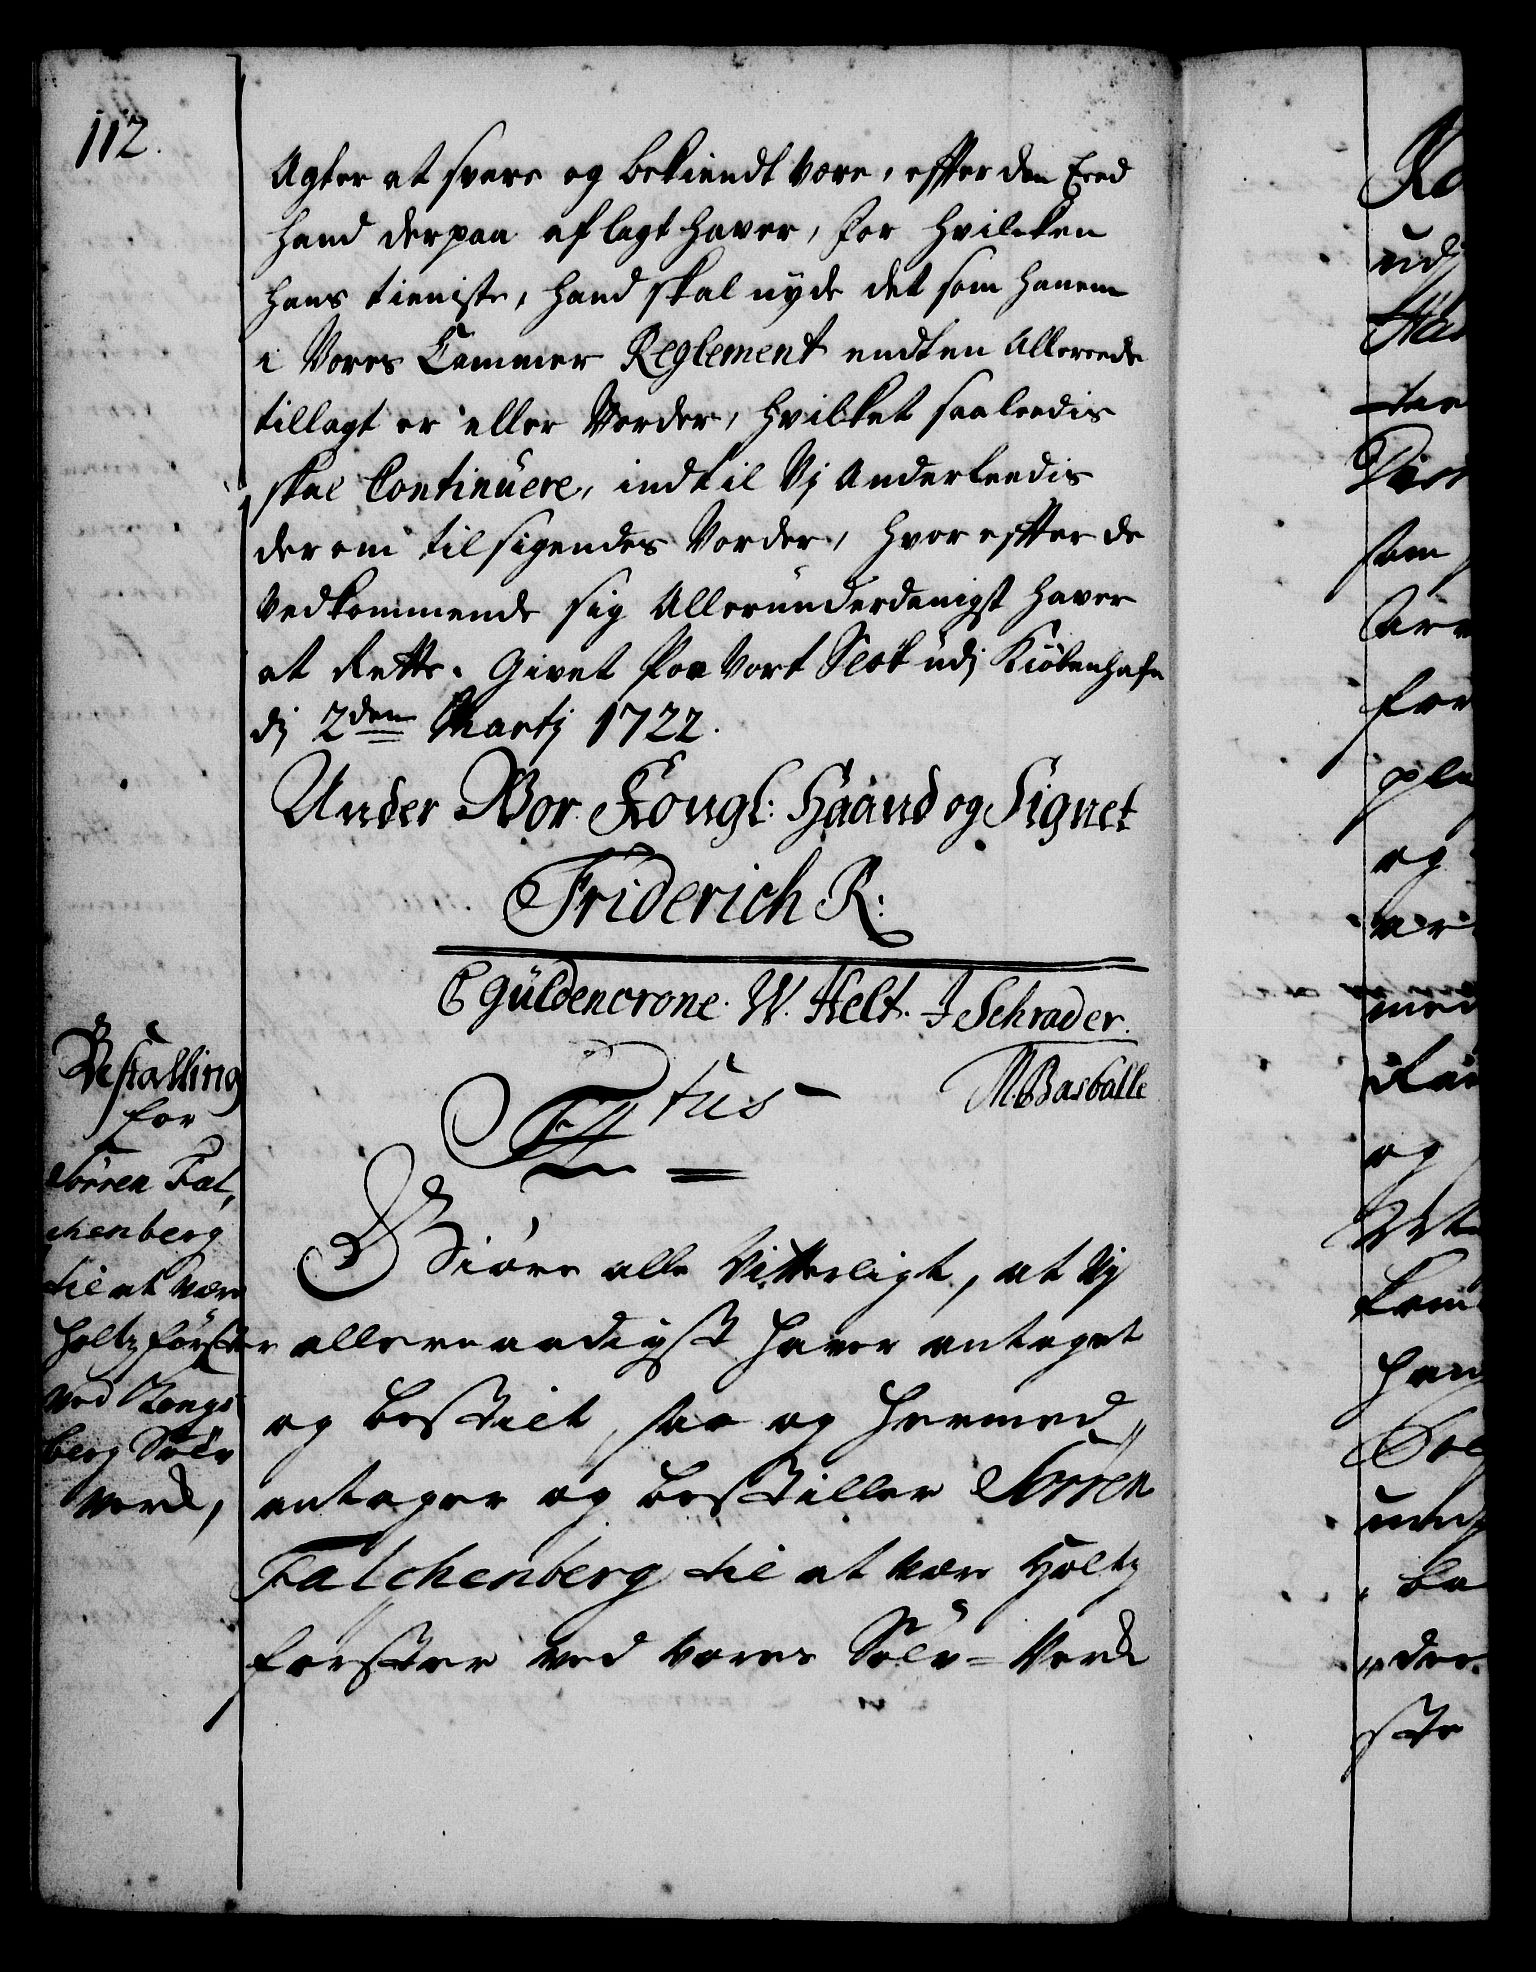 112.
Agter at svare og bekiendt være, effter den Eed
hand derpaa aflagt haver, for hvilcken
hans tieniste, hand skal nyde det som hanem
i Vores Cammer Reglement endten Allereede
tillagt er eller Vorder, hvilket saaleedis
skal Continuere, indtil Vj Anderleedis
derom tilsigendes Vorder, hvoreffter de
Vedkommende sig Allerunderdanigst haver
at Rette. Givet Paa Vort Slot udj Kiøbenhafn
dj 2den Martj 1722.
Under Vor Kongl: Haand og Signet
Friderich R:
C Güldencrone. W. Helt. J Schrader.
M. Basballe
F 4tus
Bestalling
for
Sörren Fal,
chenberg
til at være
Holtzförster
ved Kongs
berg Sölv
verk,
Giøre alle Vitterligt, at Vj
allernaadigst haver antaget
og bestilt, saa og hermed
antager og bestiller Sörren
Falchenberg til at være Holtz
forster ved vores Sölv=Verk